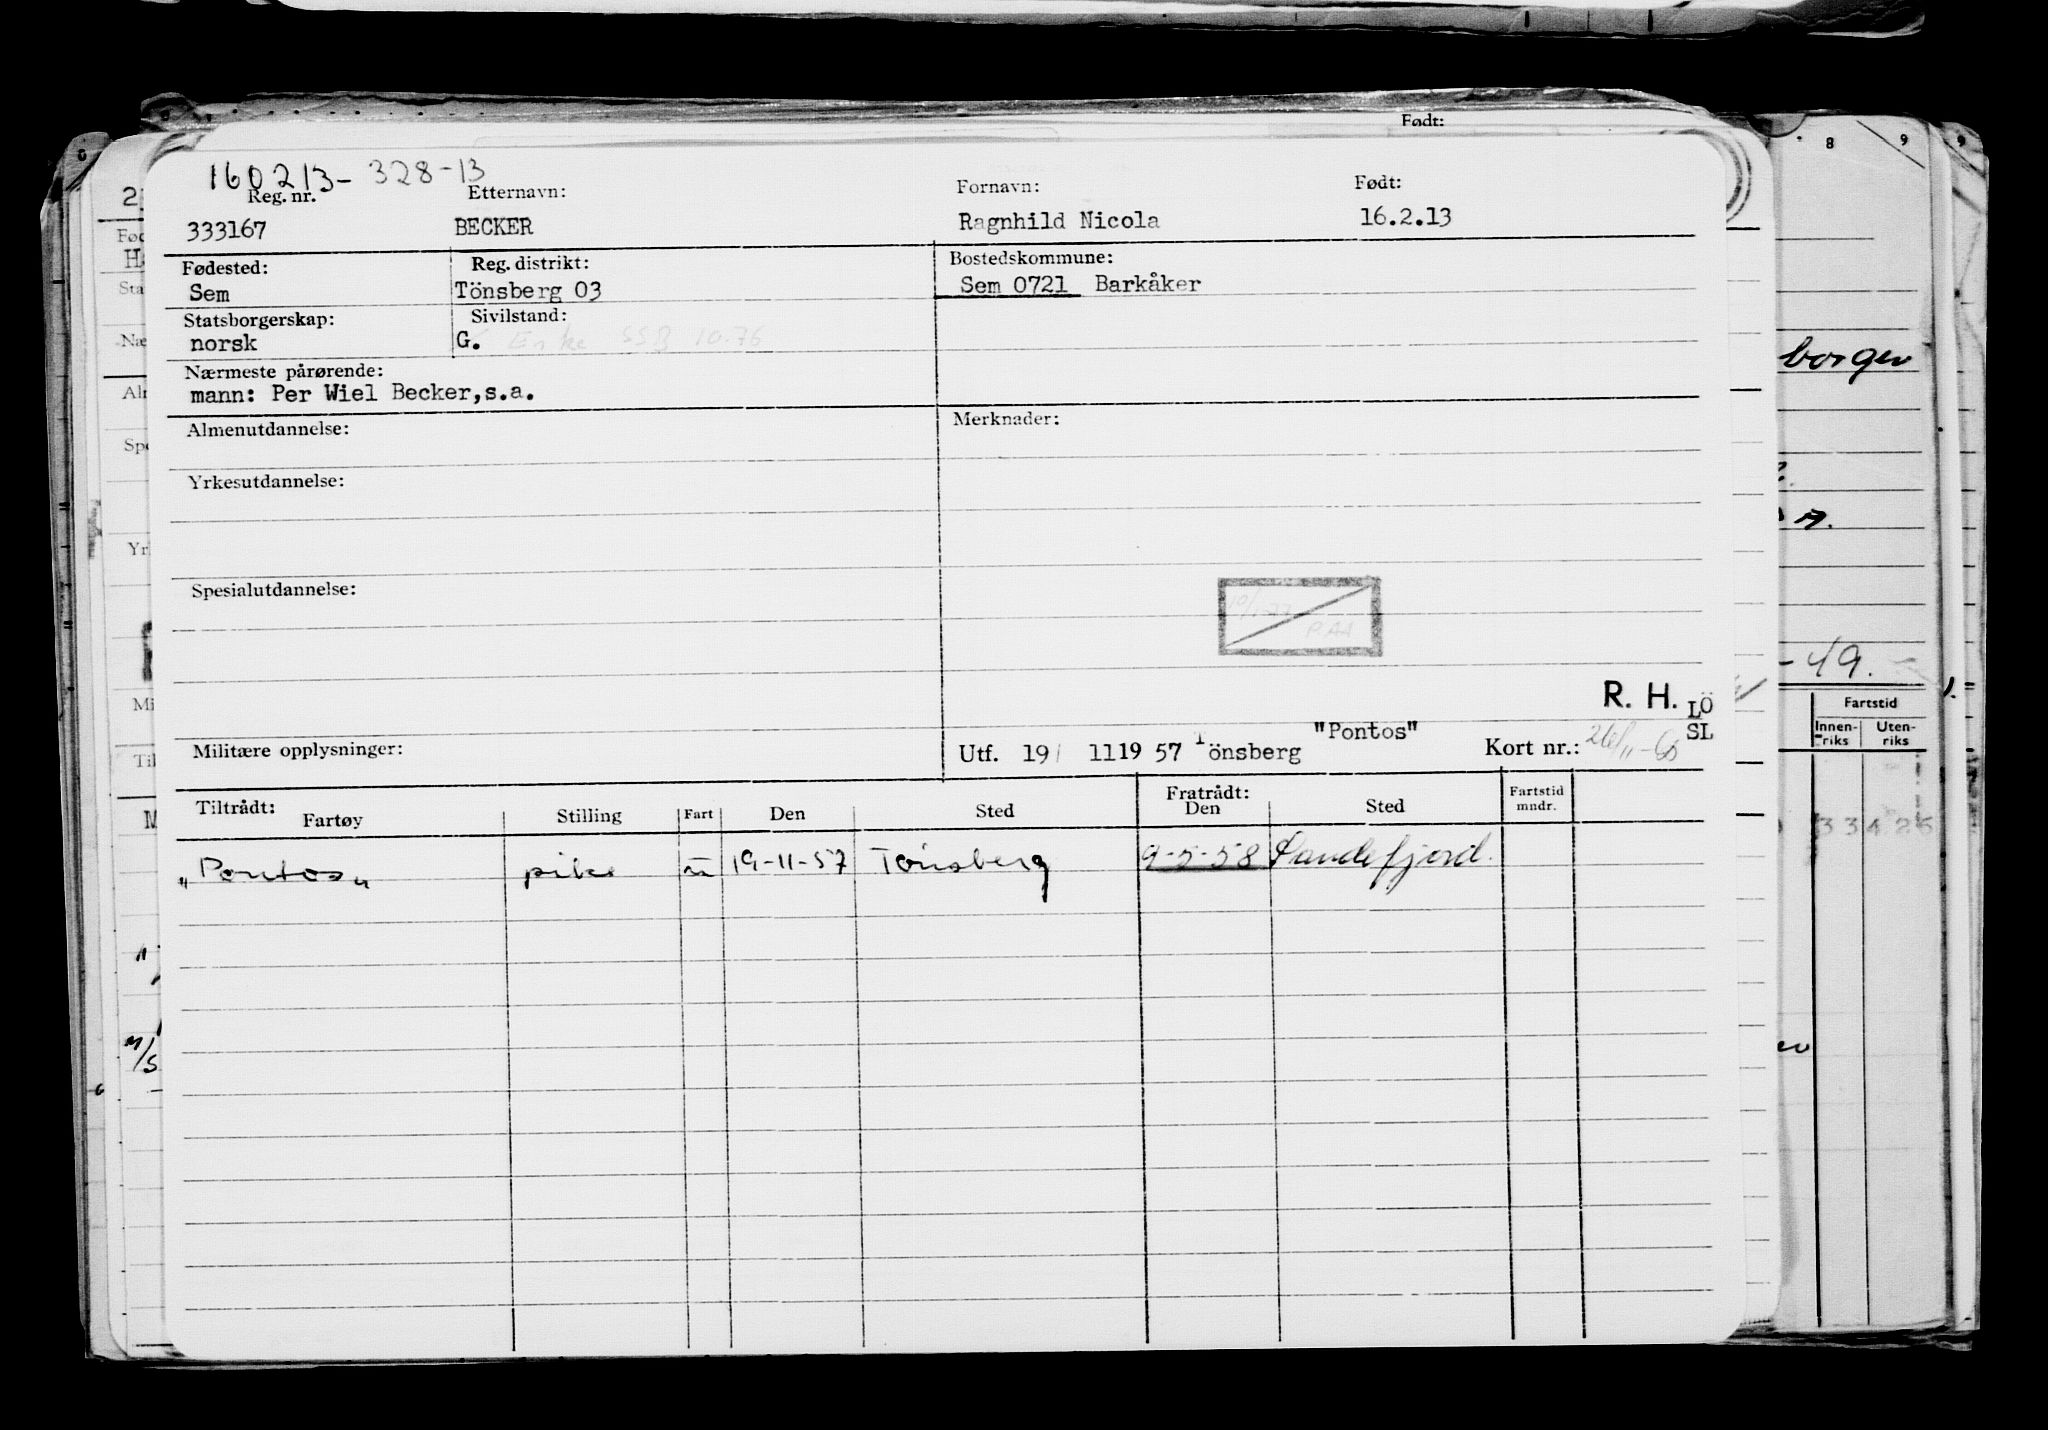 Født:
160213- 328-13
Reg. nr. Etternavn: Fornavn: Født:
333167 BECKER Ragnhild Nicola 16.2.13
Fødested: Reg. distrikt: Bostedskommune:
Sem Tönsberg 03 Sem 0721 Barkåker
Statsborgerskap: Sivilstand:
norsk G. Enke SSB 10.76
Nærmeste pårørende:
mann: Per Wiel Becker,s.a.
Almenutdannelse: Merknader:
Yrkesutdannelse:
Spesialutdannelse:
R. H. LÖ
SL
Militære opplysninger: Utf. 19/ 1119 57 Tönsberg "Pontos" Kort nr.:
Tiltrådt: Fratrådt:
Fartøy Stilling Fart Den Sted Den Sted Fartstid mndr.
"Pontos" pike u 19-11-57 Tönsberg 9-5-58 Sandefjord.
8 9 9
borger
A.
-49.
Fartstid
Innen-riks Uten-riks
33425
M/S